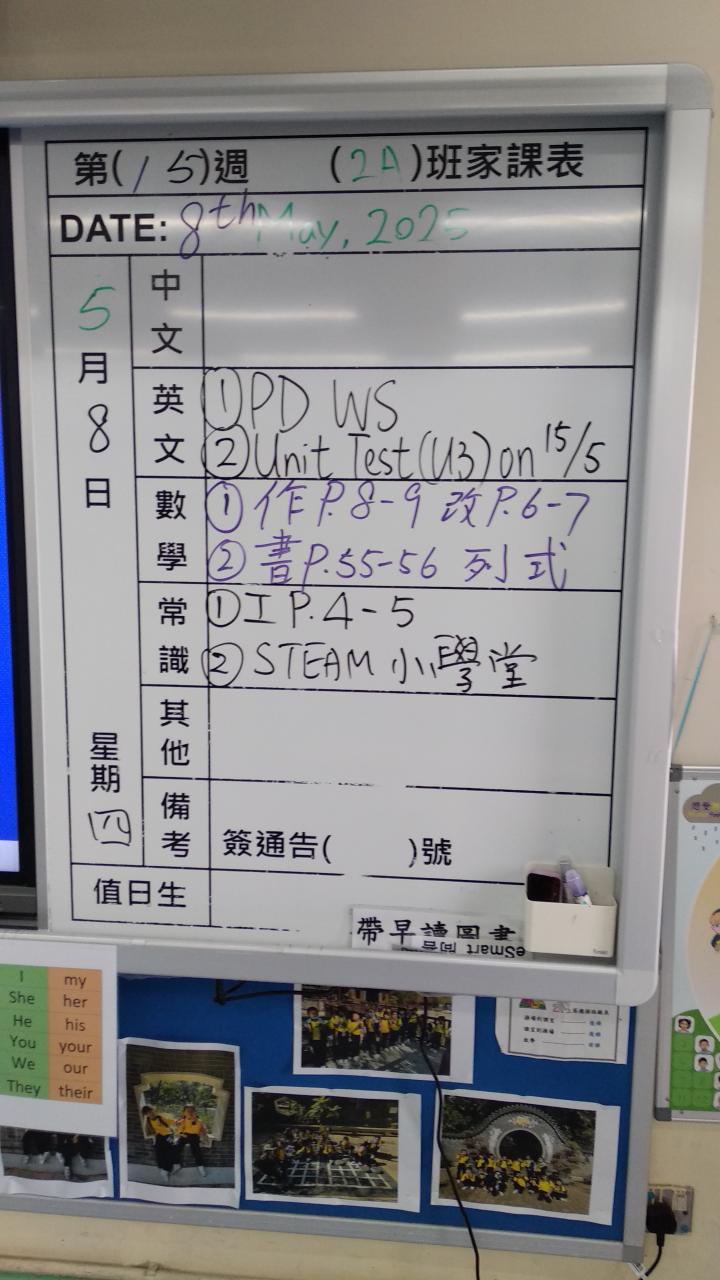 第(15)週 (2A)班家課表
DATE: 8th May, 2025
5月8日 星期四
中文
英文 ①PD WS
②Unit Test(U3) on 15/5
數學 ①作P.8-9 改P.6-7
②書P.55-56 列式
常識 ①工P.4-5
②STEAM 小學堂
其他
備考 簽通告( )號
值日生
帶早讀圖書
eSmart
I my
She her
He his
You your
We our
They their
感受